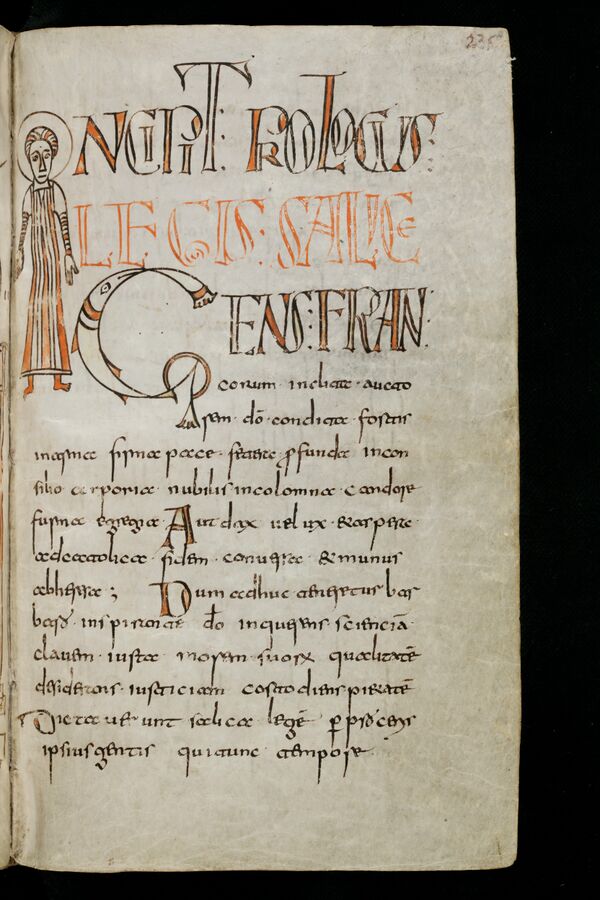 235
INCIPIT : PROLOGUS :
LEGIS : SALICE
GENS : FRAN
corum · inclita · aucto
rem · dō · condita · fortis
inarma firma pace · ꝓfunda incon
silio corporia · nubilis incolomna · candore
furma egregia · Aut dax uelux · & aspera
adcatolica · fidem · conuersa · & munus
abheresa ; Dum adhuc teneretus bar
baro · inspirante · dō inquerens scienciā
clauem · iusta morem suorꝝ qualitatē
desiderans · iusticiam costodiens pietatē
Dictauerunt salica legē ꝑ proceris
ipsius gentis qui tunc tempore